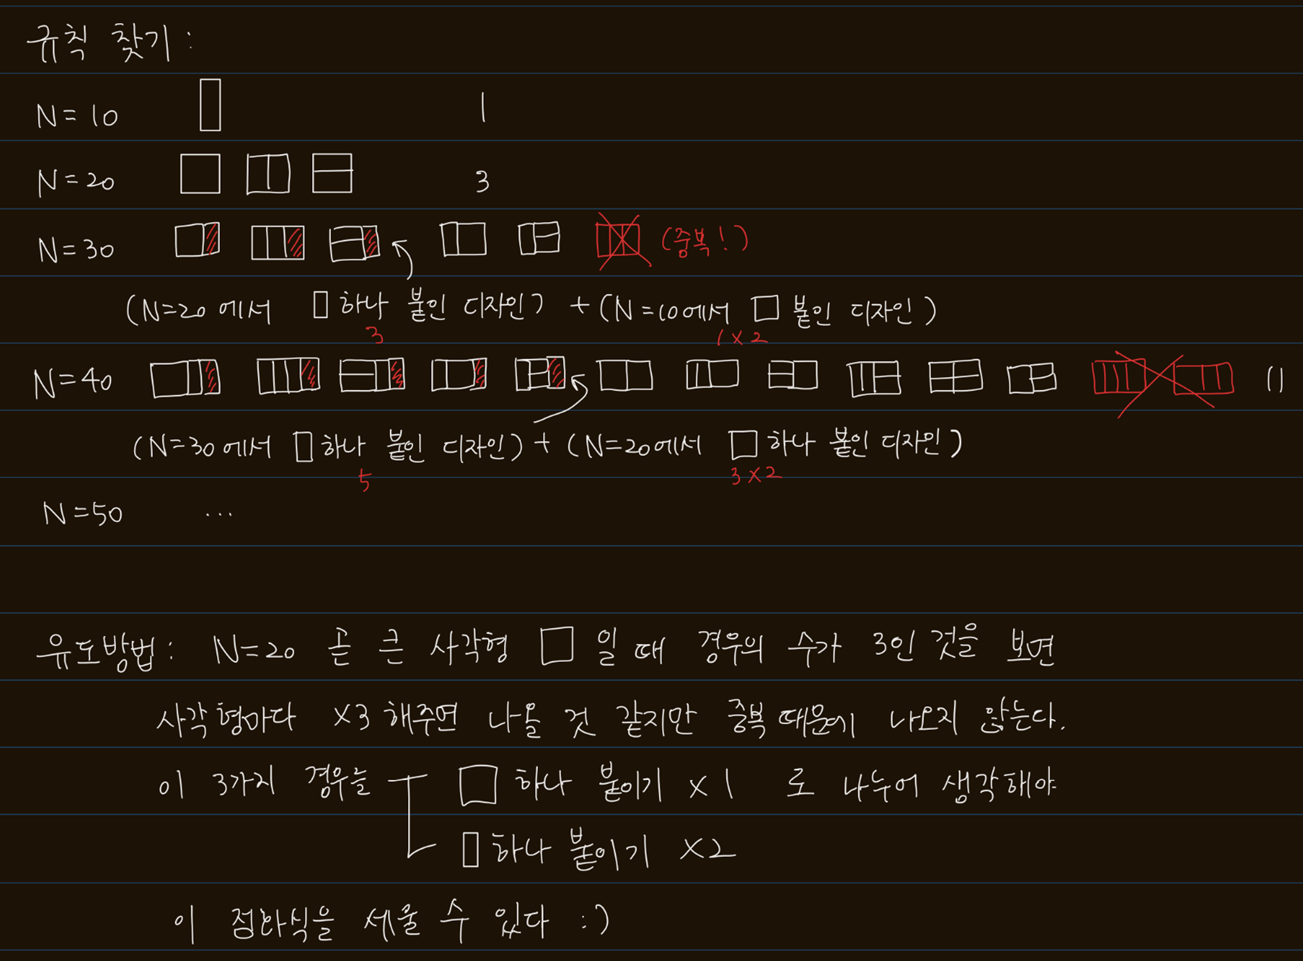 규칙 찾기 :
N=10 1
N=20 3
N=30 (중복!)
(N=20 에서 하나 붙인 디자인) + (N=10에서 붙인 디자인)
3 1×2
N=40 11
(N=30에서 하나 붙인 디자인) + (N=20에서 하나 붙인 디자인)
5 3×2
N=50 ...
유도방법 : N=20 곧 큰 사각형 일 때 경우의 수가 3인 것을 보면
사각형마다 ×3 해주면 나올 것 같지만 중복 때문에 나오지 않는다.
이 3가지 경우를 하나 붙이기 ×1 로 나누어 생각해야
하나 붙이기 ×2
이 점화식을 세울 수 있다 :)